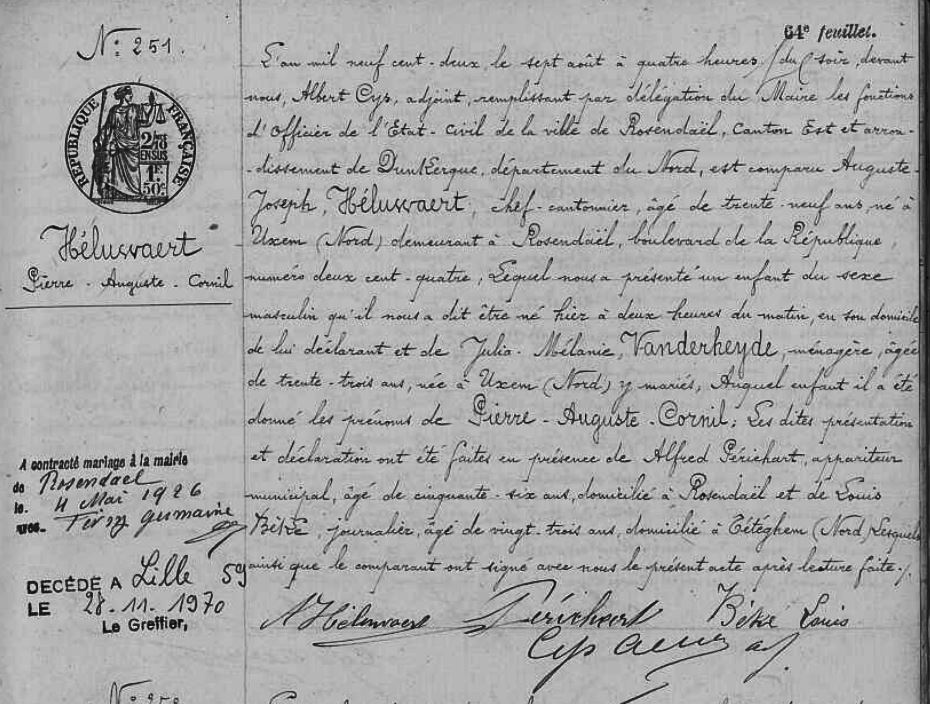 64e feuillet.
N° 251.
RÉPUBLIQUE FRANÇAISE
2/10
EN SUS
1F
50c
Héluwaert
Pierre - Auguste - Cornil
L'an mil neuf cent-deux, le sept août à quatre heures du soir, devant
nous, Albert Cys, adjoint, remplissant par délégation du Maire les fonctions
d'Officier de l'Etat-Civil de la ville de Rosendaël, Canton Est et arron-
-dissement de Dunkerque, département du Nord, est comparu Auguste-
Joseph, Héluwaert, chef-cantonnier, âgé de trente-neuf ans, né à
Uxem (Nord) demeurant à Rosendaël, boulevard de la République,
numéro deux cent-quatre, Lequel nous a présenté un enfant du sexe
masculin qu'il nous a dit être né hier à deux heures du matin, en son domicile
de lui déclarant et de Julia-Mélanie, Vanderheyde, ménagère, âgée
de trente-trois ans, née à Uxem (Nord) y mariés, Auquel enfant il a été
donné les prénoms de Pierre-Auguste-Cornil; Les dites présentation
et déclaration ont été faites en présence de Alfred Périchart, appariteur
municipal, âgé de cinquante-six ans, domicilié à Rosendaël et de Louis
Béké, journalier, âgé de vingt-trois ans, domicilié à Téteghem (Nord) Lesquels
ainsi que le comparant ont signé avec nous le présent acte après lecture faite./.
A Héluwaert Périchart Béké Louis
Cys
A contracté mariage à la mairie
de Rosendael
le 4 Mai 1926
avec germaine
DECÉDÉ A Lille 59
LE 28.11.1970
Le Greffier,